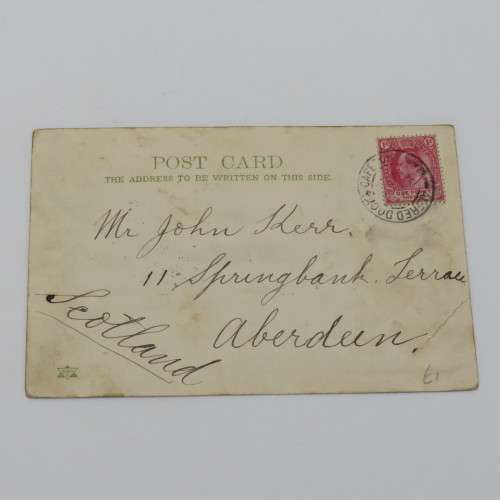 POST CARD
THE ADDRESS TO BE WRITTEN ON THIS SIDE.
ALFRED DOCK CAPE
Mr John Kerr.
11 Springbank Terrace
Aberdeen.
Scotland